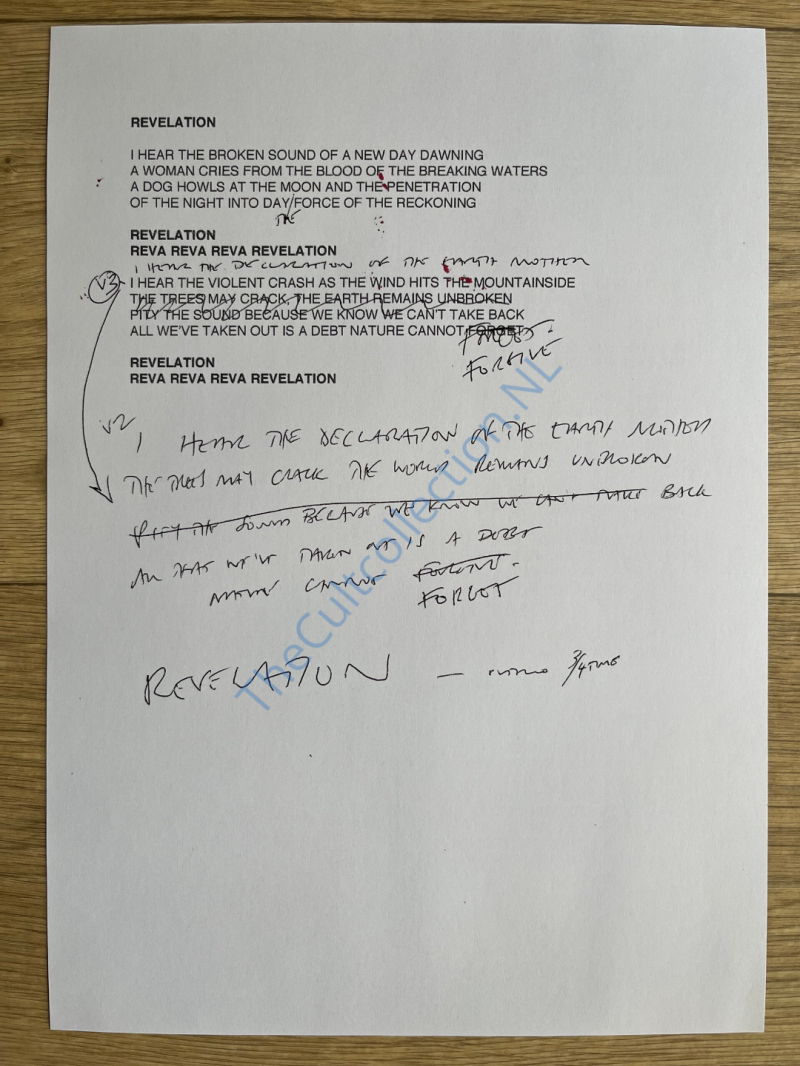 REVELATION
I HEAR THE BROKEN SOUND OF A NEW DAY DAWNING
A WOMAN CRIES FROM THE BLOOD OF THE BREAKING WATERS
A DOG HOWLS AT THE MOON AND THE PENETRATION
OF THE NIGHT INTO DAY/FORCE OF THE RECKONING
THE
REVELATION
REVA REVA REVA REVELATION
I HEAR THE DECLARATION OF THE EARTH MOTHER
V3
I HEAR THE VIOLENT CRASH AS THE WIND HITS THE MOUNTAINSIDE
THE TREES MAY CRACK, THE EARTH REMAINS UNBROKEN
PITY THE SOUND BECAUSE WE KNOW WE CAN'T TAKE BACK
ALL WE'VE TAKEN OUT IS A DEBT NATURE CANNOT FORGET
FORGIVE
REVELATION
REVA REVA REVA REVELATION
V2
I HEAR THE DECLARATION OF THE EARTH MOTHER
THE TREES MAY CRACK THE WORLD REMAINS UNBROKEN
PITY THE SOUND BECAUSE WE KNOW WE CAN'T TAKE BACK
ALL THAT WE'VE TAKEN OUT IS A DEBT
NATURE CANNOT FORGIVE.
FORGET
REVELATION — 3/4 TIME
TheCultcollection.NL